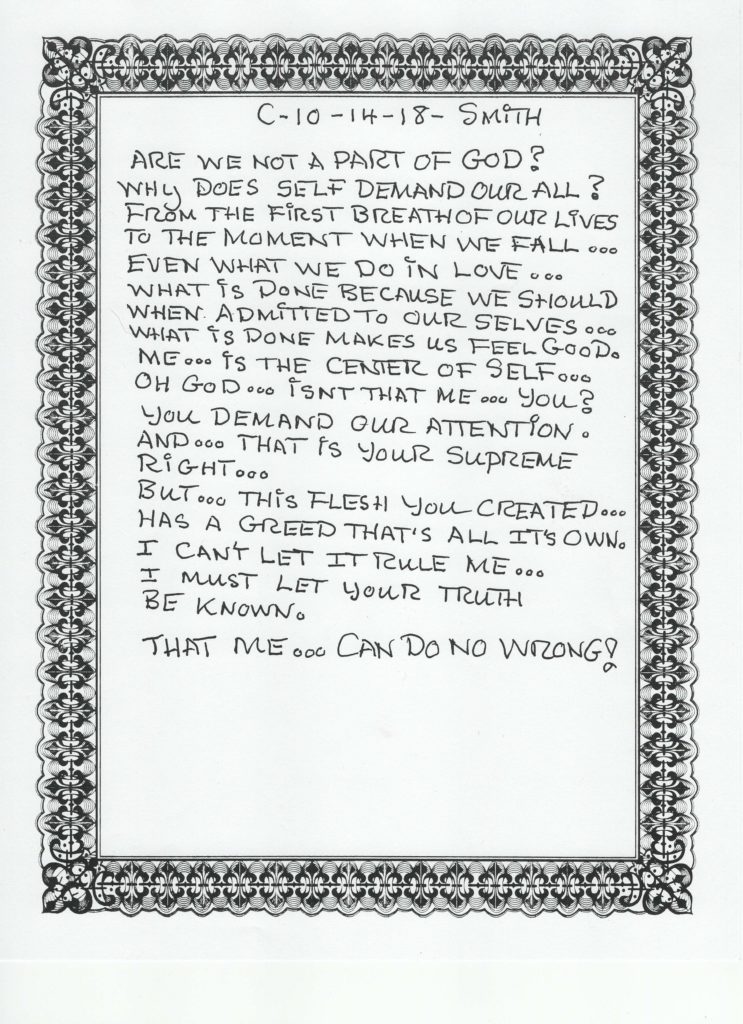 C-10-14-18- SMiTH
ARE WE NOT A PART OF GOD?
WHY DOES SELF DEMAND OUR ALL?
FROM THE FiRST BREATH OF OUR LiVES
TO THE MOMENT WHEN WE FALL...
EVEN WHAT WE DO iN LOVE...
WHAT iS DONE BECAUSE WE SHOULD
WHEN ADMITTED TO OUR SELVES...
WHAT iS DONE MAKES US FEEL GOOD.
ME... iS THE CENTER OF SELF...
OH GOD... iSNT THAT ME... YOU?
YOU DEMAND OUR ATTENTION.
AND... THAT iS YOUR SUPREME
RiGHT...
BUT... THiS FLESH YOU CREATED...
HAS A GREED THAT'S ALL IT'S OWN.
I CAN'T LET IT RULE ME...
I MUST LET YOUR TRUTH
BE KNOWN.
THAT ME... CAN DO NO WRONG!